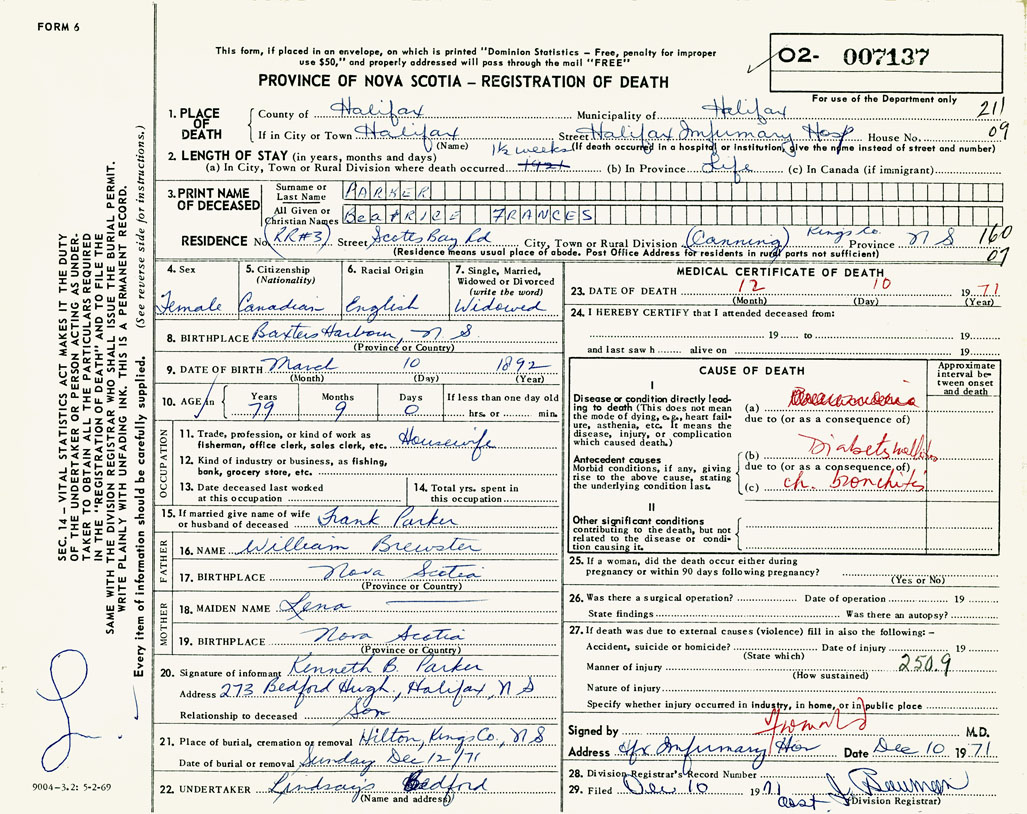 FORM 6
This form, if placed in an envelope, on which is printed "Dominion Statistics – Free, penalty for improper
use $50," and properly addressed will pass through the mail "FREE"
PROVINCE OF NOVA SCOTIA – REGISTRATION OF DEATH
02- 007137
For use of the Department only
211
09
1. PLACE OF DEATH
County of Halifax Municipality of Halifax
If in City or Town Halifax Street Halifax Infirmary Hosp House No.
(Name) (If death occurred in a hospital or institution, give the name instead of street and number)
2. LENGTH OF STAY (in years, months and days)
(a) In City, Town or Rural Division where death occurred 1½ weeks 1921 (b) In Province Life (c) In Canada (if immigrant)
3. PRINT NAME OF DECEASED
Surname or Last Name PARKER
All Given or Christian Names BeaTRICE FRANCES
RESIDENCE No. (RR#3) Street Scots Bay Rd City, Town or Rural Division (Canning) Kings Co. Province N S
(Residence means usual place of abode. Post Office Address for residents in rural parts not sufficient)
160
07
4. Sex
Female
5. Citizenship (Nationality)
Canadian
6. Racial Origin
English
7. Single, Married, Widowed or Divorced (write the word)
Widowed
8. BIRTHPLACE Baxters Harbour, N S
(Province or Country)
9. DATE OF BIRTH March 10 1892
(Month) (Day) (Year)
10. AGE in
Years Months Days If less than one day old
79 9 0 hrs. or min.
OCCUPATION
11. Trade, profession, or kind of work as
fisherman, office clerk, sales clerk, etc. Housewife
12. Kind of industry or business, as fishing,
bank, grocery store, etc.
13. Date deceased last worked
at this occupation
14. Total yrs. spent in
this occupation
15. If married give name of wife
or husband of deceased Frank Parker
FATHER
16. NAME William Brewster
17. BIRTHPLACE Nova Scotia
(Province or Country)
MOTHER
18. MAIDEN NAME Lena
19. BIRTHPLACE Nova Scotia
(Province or Country)
20. Signature of informant Kenneth B. Parker
Address 273 Bedford Hugh., Halifax, N S
Relationship to deceased Son
21. Place of burial, cremation or removal Hilton, Kings Co., N S
Date of burial or removal Sunday Dec 12/71
22. UNDERTAKER Lindsays Bedford
(Name and address)
MEDICAL CERTIFICATE OF DEATH
23. DATE OF DEATH 12 10 1971
(Month) (Day) (Year)
24. I HEREBY CERTIFY that I attended deceased from:
19 to 19
and last saw h alive on 19
CAUSE OF DEATH
Approximate interval between onset and death
I
Disease or condition directly leading
to death (This does not mean
the mode of dying, e.g., heart failure,
asthenia, etc. It means the
disease, injury, or complication
which caused death.)
(a)
due to (or as a consequence of)
Antecedent causes
Morbid conditions, if any, giving
rise to the above cause, stating
the underlying condition last.
(b) Diabetes mellitus
due to (or as a consequence of)
(c) ch. bronchitis
II
Other significant conditions
contributing to the death, but not
related to the disease or condition
causing it.
25. If a woman, did the death occur either during
pregnancy or within 90 days following pregnancy?
(Yes or No)
26. Was there a surgical operation? Date of operation 19
State findings Was there an autopsy?
27. If death was due to external causes (violence) fill in also the following: –
Accident, suicide or homicide? Date of injury 19
(State which)
Manner of injury 250.9
(How sustained)
Nature of injury
Specify whether injury occurred in industry, in home, or in public place
Signed by M.D.
Address Hfx Infirmary Date Dec 10 1971
28. Division Registrar's Record Number
29. Filed Dec 10 1971 J. Bauman
(Division Registrar)
SEC. 14 – VITAL STATISTICS ACT MAKES IT THE DUTY
OF THE UNDERTAKER OR PERSON ACTING AS UNDERTAKER
TO OBTAIN ALL THE PARTICULARS REQUIRED
IN THE "REGISTRATION OF DEATH" AND TO FILE THE
SAME WITH THE DIVISION REGISTRAR WHO SHALL ISSUE THE BURIAL PERMIT.
WRITE PLAINLY WITH UNFADING INK. THIS IS A PERMANENT RECORD.
Every item of information should be carefully supplied. (See reverse side for instructions.)
9004-3.2: 5-2-69